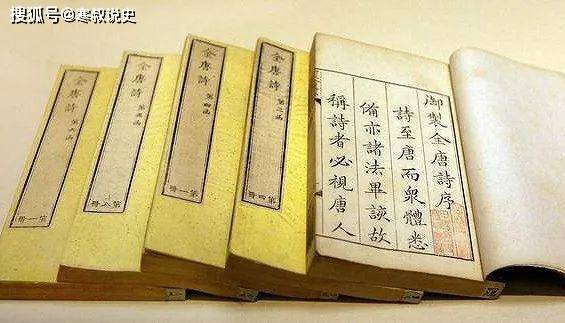 搜狐号@寒叔说史
御製全唐詩序
詩至唐而衆體悉
備亦諸法畢該故
稱詩者必視唐人
全唐詩 第三函
第四冊
全唐詩 第四函
第一冊
全唐詩 第五函
第八冊
全唐詩 第六函
第一冊